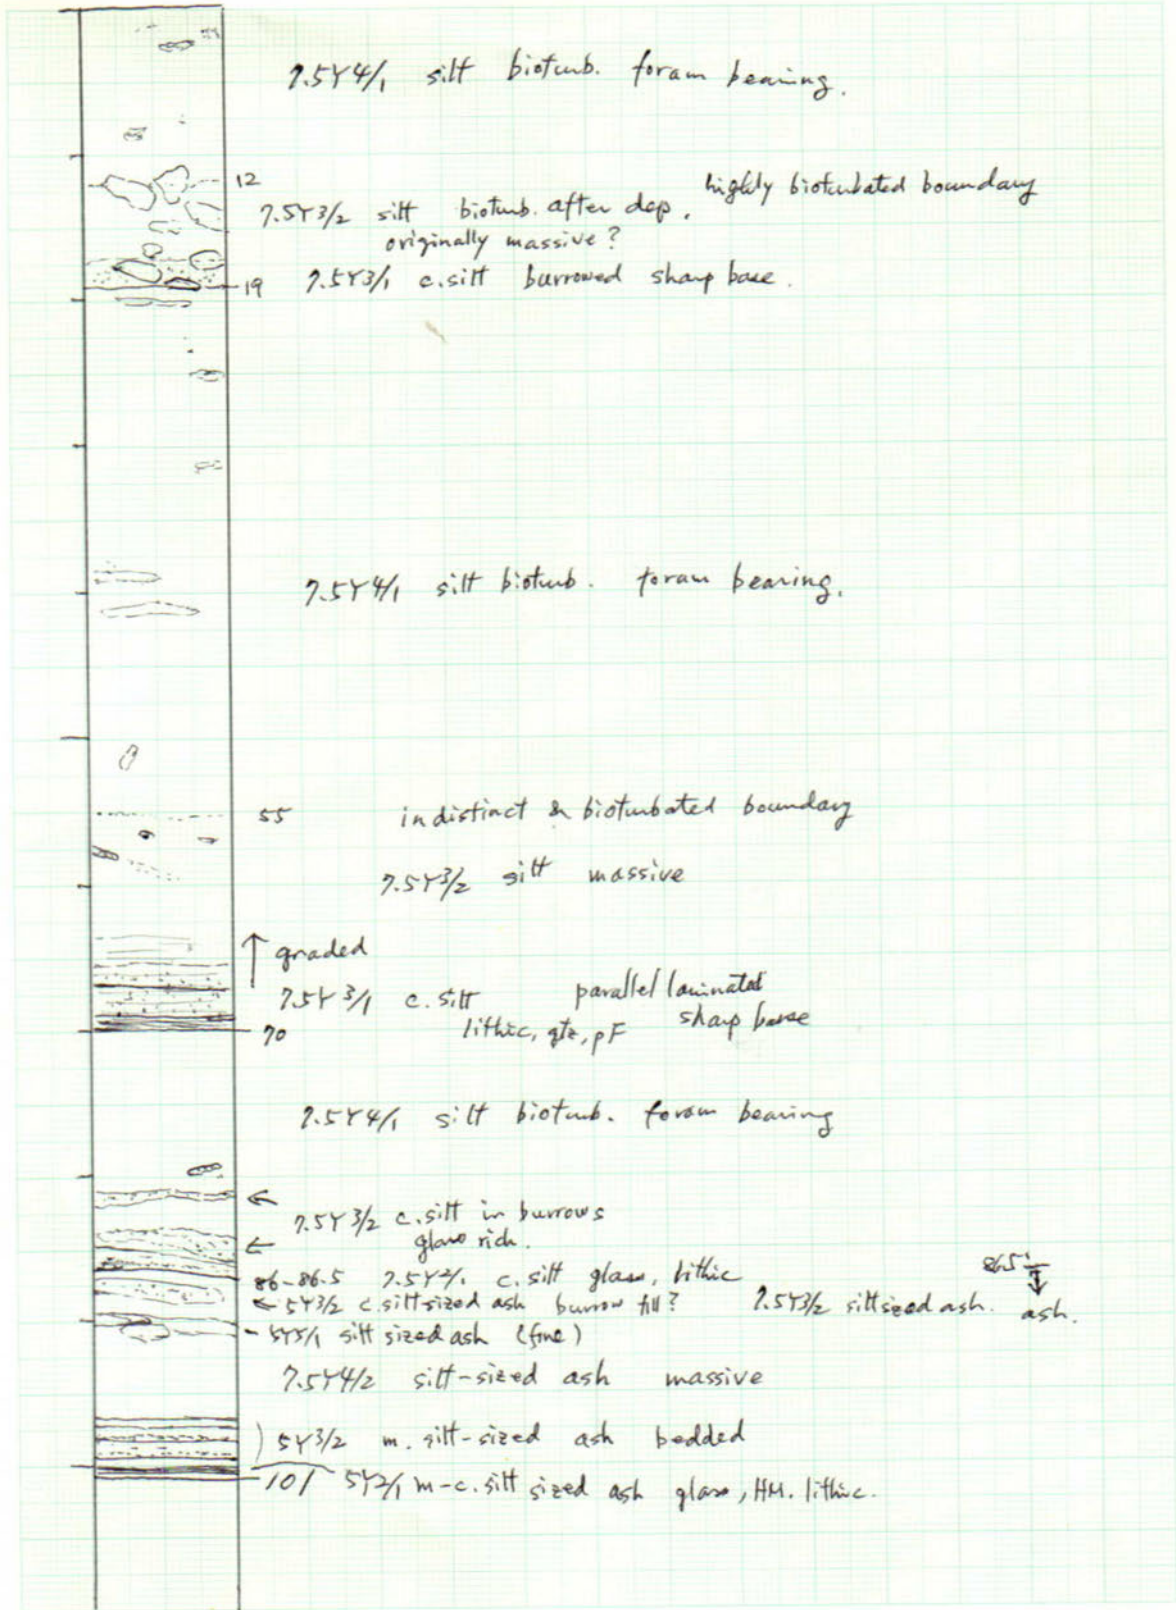 7.5Y4/1 silt bioturb. foram bearing.
12
highly bioturbated boundary
7.5Y3/2 silt bioturb. after dep.
originally massive?
19 7.5Y3/1 c.silt burrowed sharp base.
7.5Y4/1 silt bioturb. foram bearing.
55 indistinct & bioturbated boundary
7.5Y3/2 silt massive
↑ graded
7.5Y3/1 c.silt parallel laminated
70 lithic, qtz, pF sharp base
7.5Y4/1 silt bioturb. foram bearing
←
7.5Y3/2 c.silt in burrows
← glass rich.
86-86.5 7.5Y2/1 c.silt glass, lithic
86.5
← 5Y3/2 c.silt-sized ash burrow fill? 7.5Y3/2 silt sized ash. ash.
5Y5/1 silt sized ash (fine)
7.5Y4/2 silt-sized ash massive
) 5Y3/2 m. silt-sized ash bedded
101 5Y2/1 m-c.silt sized ash glass, HM. lithic.